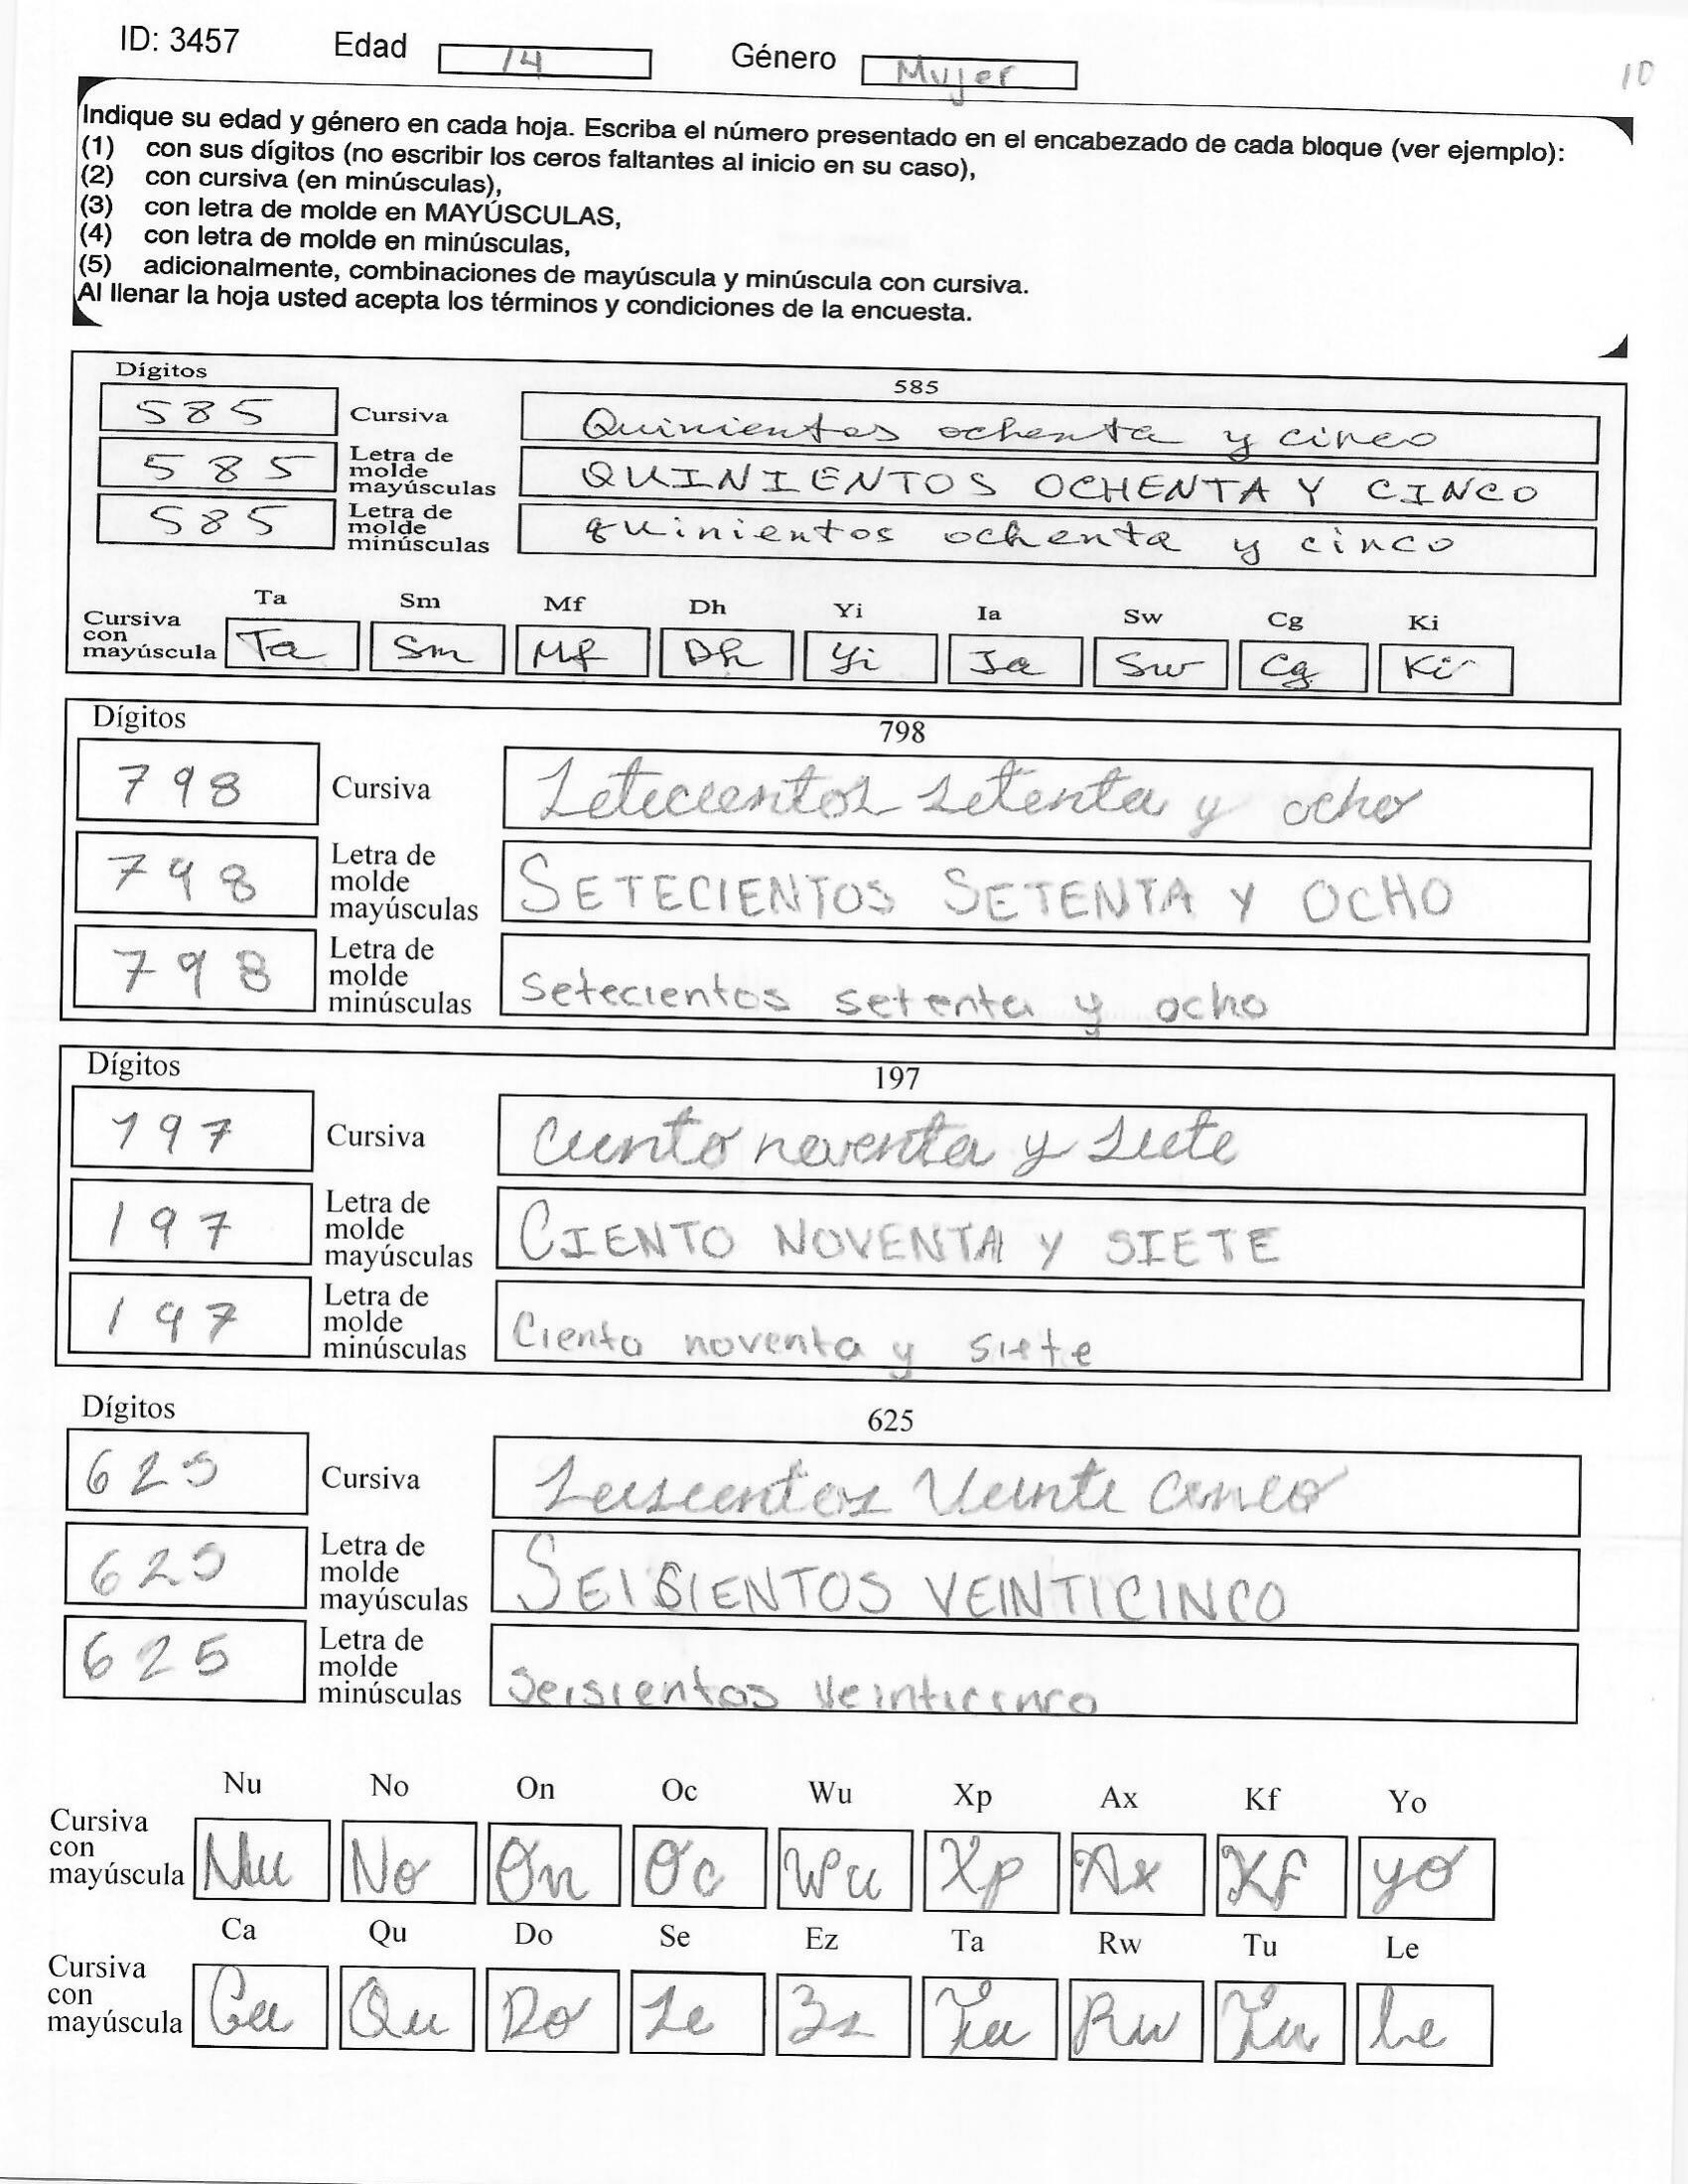 ID: 3457 Edad 14 Género Mujer 10
Indique su edad y género en cada hoja. Escriba el número presentado en el encabezado de cada bloque (ver ejemplo):
(1) con sus dígitos (no escribir los ceros faltantes al inicio en su caso),
(2) con cursiva (en minúsculas),
(3) con letra de molde en MAYÚSCULAS,
(4) con letra de molde en minúsculas,
(5) adicionalmente, combinaciones de mayúscula y minúscula con cursiva.
Al llenar la hoja usted acepta los términos y condiciones de la encuesta.
Dígitos 585
585 Cursiva Quinientos ochenta y cinco
585 Letra de molde mayúsculas QUINIENTOS OCHENTA Y CINCO
585 Letra de molde minúsculas quinientos ochenta y cinco
Ta Sm Mf Dh Yi Ia Sw Cg Ki
Cursiva con mayúscula Ta Sm Mf Dh Yi Ia Sw Cg Ki
Dígitos 798
798 Cursiva Setecientos setenta y ocho
798 Letra de molde mayúsculas SETECIENTOS SETENTA Y OCHO
798 Letra de molde minúsculas Setecientos setenta y ocho
Dígitos 197
197 Cursiva Ciento noventa y siete
197 Letra de molde mayúsculas CIENTO NOVENTA Y SIETE
197 Letra de molde minúsculas Ciento noventa y siete
Dígitos 625
625 Cursiva Seiscientos Veinte cinco
625 Letra de molde mayúsculas SEISIENTOS VEINTICINCO
625 Letra de molde minúsculas Seisientos veinticinco
Nu No On Oc Wu Xp Ax Kf Yo
Cursiva con mayúscula Nu No On Oc Wu Xp Ax Kf Yo
Ca Qu Do Se Ez Ta Rw Tu Le
Cursiva con mayúscula Ca Qu Do Se Ez Ta Rw Tu Le